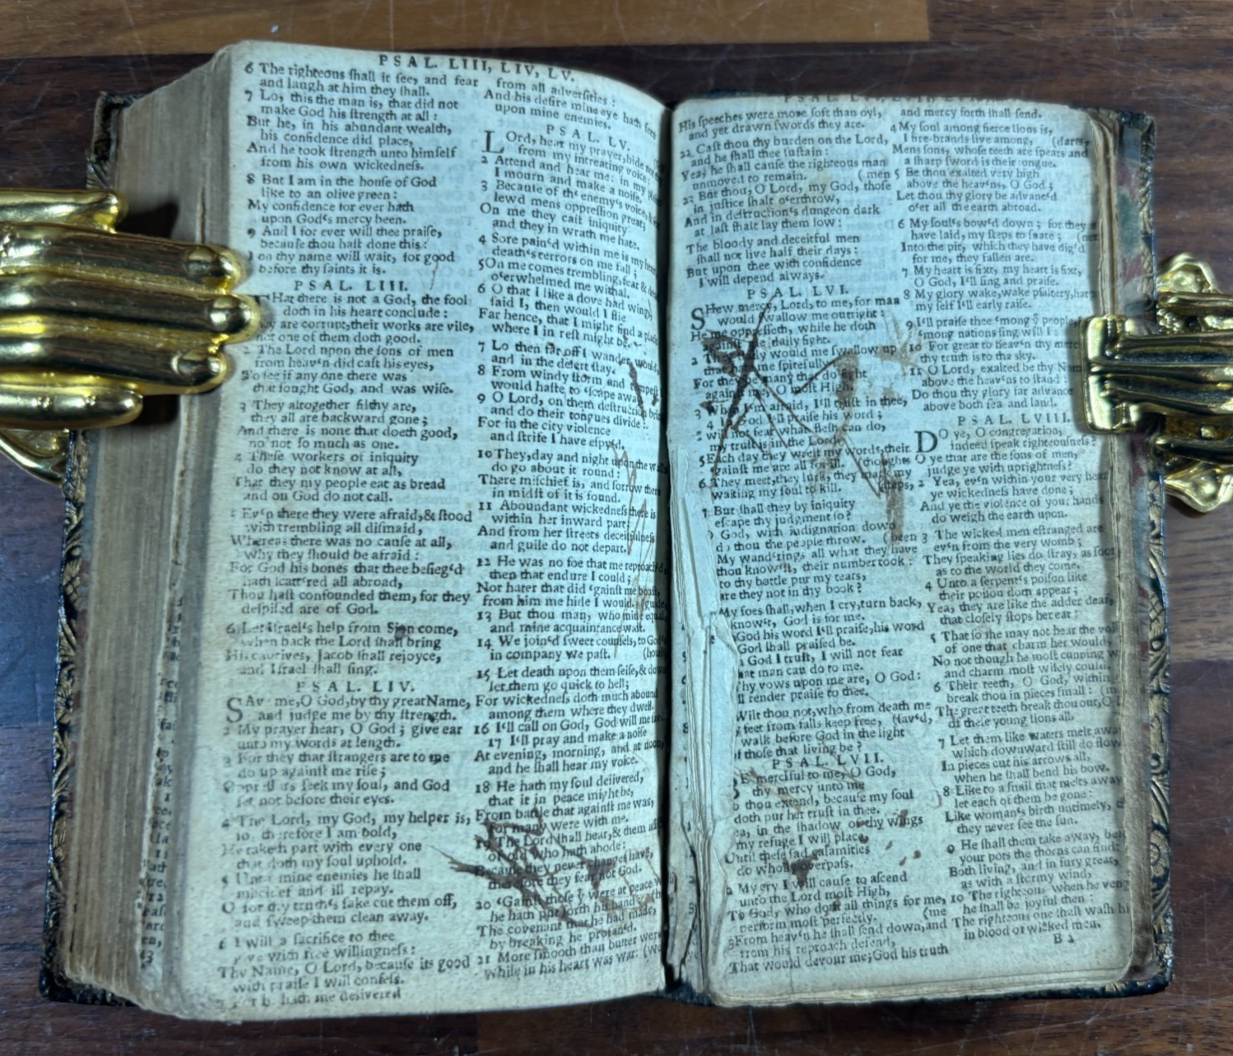 PSAL. LIII, LIV, LV.
6 The righteons ſhall it ſee, and fear
and laugh at him they ſhall.
7 Lo, this the man is, that did not
make God his ſtrength at all:
But he, in his abundant wealth,
his confidence did place,
And he took ſtrength unto himſelf
from his own wickedneſs.
8 But I am in the houſe of God
like to an olive green:
My confidence for ever hath
upon God's mercy been.
9 And I for ever will thee praiſe,
becauſe thou haſt done this:
on thy name will wait, for good
before thy ſaints it is.
PSAL. LIII.
That there is not a God, the fool
doth in his heart conclude:
they are corrupt, their works are vile,
not one of them doth good.
2 The Lord upon the ſons of men
from heav'n did caſt his eyes,
To ſee if any one there was
that ſought God, and was wiſe.
3 They altogether filthy are,
they all are backward gone;
And there is none that doeth good,
no not ſo much as one.
4 Theſe workers of iniquity
do they not know at all,
That they my people eat as bread
and on God do not call.
5 Ev'n there they were afraid, & ſtood
with trembling all diſmaid,
Whereas there was no cauſe at all,
why they ſhould be afraid:
For God his bones that thee beſieg'd
hath ſcattered all abroad,
Thou haſt confounded them, for they
deſpiſed are of God.
6 Let Iſrael's help from Sion come,
when back the Lord ſhall bring
His captives, Jacob ſhall rejoyce,
and Iſrael ſhall ſing.
PSAL. LIV.
SAve me, O God, by thy great Name,
and judge me by thy ſtrength.
2 My prayer hear, O God; give ear
unto my words at length.
3 For they that ſtrangers are to me
do up againſt me riſe;
Oppreſſors ſeek my ſoul, and God
ſet not before their eyes.
4 The Lord, my God, my helper is,
lo, therefore I am bold,
He taketh part with every one
that doth my ſoul uphold.
5 Unto mine enemies he ſhall
miſchief and ill repay.
O for thy truth's ſake cut them off,
and ſweep them clean away.
6 I will a ſacrifice to thee
give with free willingneſs:
Thy Name, O Lord, becauſe its good
with praiſe I will confeſs.
7 hath me delivered
from all adverſities:
And his deſire mine eye hath ſeen
upon mine enemies.
PSAL. LV.
LOrd, hear my prayer, hide not
from my intreating voice:
2 Attend and hear me: in my
I mourn and make a noiſe.
3 Becauſe of th' enemy's voice, &
lewd mens oppreſſion great:
On me they caſt iniquity
and they in wrath me hate.
4 Sore pain'd within me is my heart
death's terrors on me fall;
5 On me comes trembling, fear &
o'erwhelmed me withal.
6 O that I like a dove had wings
ſaid I, then would I flie
Far hence, that I might find a place
where I in reſt might be.
7 Lo then far off I wander would,
and in the deſert ſtay,
8 From windy ſtorm and tempeſt
would haſte to ſcape away.
9 O Lord, on them deſtruction bring
and do their tongues divide:
For in the city violence
and ſtrife I have eſpy'd.
10 They, day and night upon the walls
do go about it round:
There miſchief is, and ſorrow there
in midſt of it is found.
11 Abundant wickedneſs there is
within her inward part
And from her ſtreets deceitfulneſs
and guile do not depart.
12 He was no foe that me reproach'd
then that endure I could;
Nor hater that did 'gainſt me boaſt,
from him me hide I would:
13 But thou man, who mine equal
and mine acquaintance waſt.
14 We join'd ſweet counſels, to God's
in company we paſt.
15 Let death upon them ſeiſe, & down
let them go quick to hell;
For wickedneſs doth much abound
among them where they dwell.
16 I'll call on God, God will me
17 I'll pray and make a noiſe
At evening, morning, and at noon,
and he ſhall hear my voice.
18 He hath my ſoul delivered,
that it in peace might be,
From battle that againſt me was,
For many were with me.
19 The Lord ſhall hear, & them
of old who hath abode:
Becauſe they never changes have,
therefore they fear not God.
20 'Gainſt thoſe that were at peace
he hath put forth his hand
The covenant that he had made,
by breaking he profan'd.
21 More ſmooth than butter were
while in his heart was war.
His ſpeeches were more ſoft than oyl,
and yet drawn ſwords they are.
22 Caſt thou thy burden on the Lord,
and he ſhall thee ſuſtain:
Yea, he ſhall cauſe the righteous man
unmoved to remain. (men
23 But thou, O Lord, my God, thoſe
in juſtice ſhalt o'erthrow,
And in deſtruction's dungeon dark
at laſt ſhalt lay them low:
The bloody and deceitful men
ſhall not live half their days:
But upon thee with confidence
I will depend always.
PSAL. LVI.
SHew mercy, Lord, to me, for man
would ſwallow me outright:
He me oppreſſeth, while he doth
againſt me daily fight.
2 They daily would me ſwallow up
that me ſpitefully
For they be many that do fight
O moſt High.
3 When I'm afraid, I'll truſt in thee,
4 In God I'll praiſe his word;
I will not fear what fleſh can do,
my truſt is in the Lord.
5 Each day they wreſt my words, their
'gainſt me are all for ill. (thoughts
6 They meet, they lurk, they mark my
waiting my ſoul to kill. (ſteps,
7 But ſhall they by iniquity
eſcape thy judgment ſo?
O God, with indignation down
do thou the people throw.
My wandrings all what they have been
thou know'ſt, their number took:
Into thy bottle put my tears,
are they not in thy book?
My foes ſhall, when I cry, turn back,
I know't, God is for me.
In God his word I'll praiſe, his word
in God ſhall praiſed be.
In God I truſt, I will not fear
what man can do to me.
Thy vows upon me are, O God:
I'll render praiſe to thee.
Wilt thou not, who from death me
my feet from falls keep free, (ſav'd,
To walk before God in the light
of thoſe that living be?
PSAL. LVII.
BE merciful to me, O God,
thy mercy unto me
do thou extend, becauſe my ſoul
doth put her truſt in thee.
Yea, in the ſhadow of thy wings
my refuge I will place
Until theſe ſad calamities
do wholly overpaſs.
2 My cry I will cauſe to aſcend
unto the Lord moſt High,
To God, who doth all things for me,
perform moſt perfectly. (me
3 From heav'n he ſhall ſend down, and
from his reproach defend,
That would devour me; God his truth
and mercy forth ſhall ſend.
4 My ſoul among fierce lions is,
I fire-brands live among, (darts
Mens ſons, whoſe teeth are ſpears and
a ſharp ſword is their tongue.
5 Be thou exalted very high
above the heav'ns, O God;
Let thou thy glory be advanc'd
o'er all the earth abroad.
6 My ſoul's bow'd down; for they
have laid, my ſteps to ſnare;
Into the pit, which they have dig'd
for me, they fallen are.
7 My heart is fixt, my heart is fixt,
O God, I'll ſing and praiſe.
8 My glory wake, wake pſaltery, harp
my ſelf I'll early raiſe.
9 I'll praiſe thee 'mong the people
'mong nations ſing will I:
10 For great to heav'n thy mercy
thy truth is to the sky.
11 O Lord, exalted be thy Name
above the heav'ns to ſtand
Do thou thy glory far advance
above both ſea and land.
PSAL. LVIII.
DO ye, O congregation,
indeed ſpeak righteouſneſs?
O ye that are the ſons of men,
judge ye with uprightneſs?
2 Yea, ev'n within your very heart
ye wickedneſs have done;
And ye the violence of your hands
do weigh the earth upon.
3 The wicked men eſtranged are
ev'n from the very womb;
They ſpeaking lies do ſtray, as ſoon
as to the world they come,
4 Unto a ſerpent's poiſon like
their poiſon doth appear;
Yea, they are like the adder deaf,
that cloſely ſtops her ear:
5 That ſo ſhe may not hear the voice
of one that charm her would,
No not though he moſt cunning were
and charm moſt wiſely could.
6 Their teeth, O God, within
break thou in pieces ſmall:
7 Let them like waters melt away
which downward ſtill do flow
In pieces cut his arrows all,
when he ſhall bend his bow.
8 Like to a ſnail that melts away
let each of them be gone:
Like woman's birth untimely,
they never ſee the ſun.
9 He ſhall them take away, before
your pots the thorns can find
Both living, and in fury great,
as with a ſtormy wind.
10 The righteous, when he vengeance
he ſhall be joyful then:
The righteous one ſhall waſh his
in blood of wicked men.